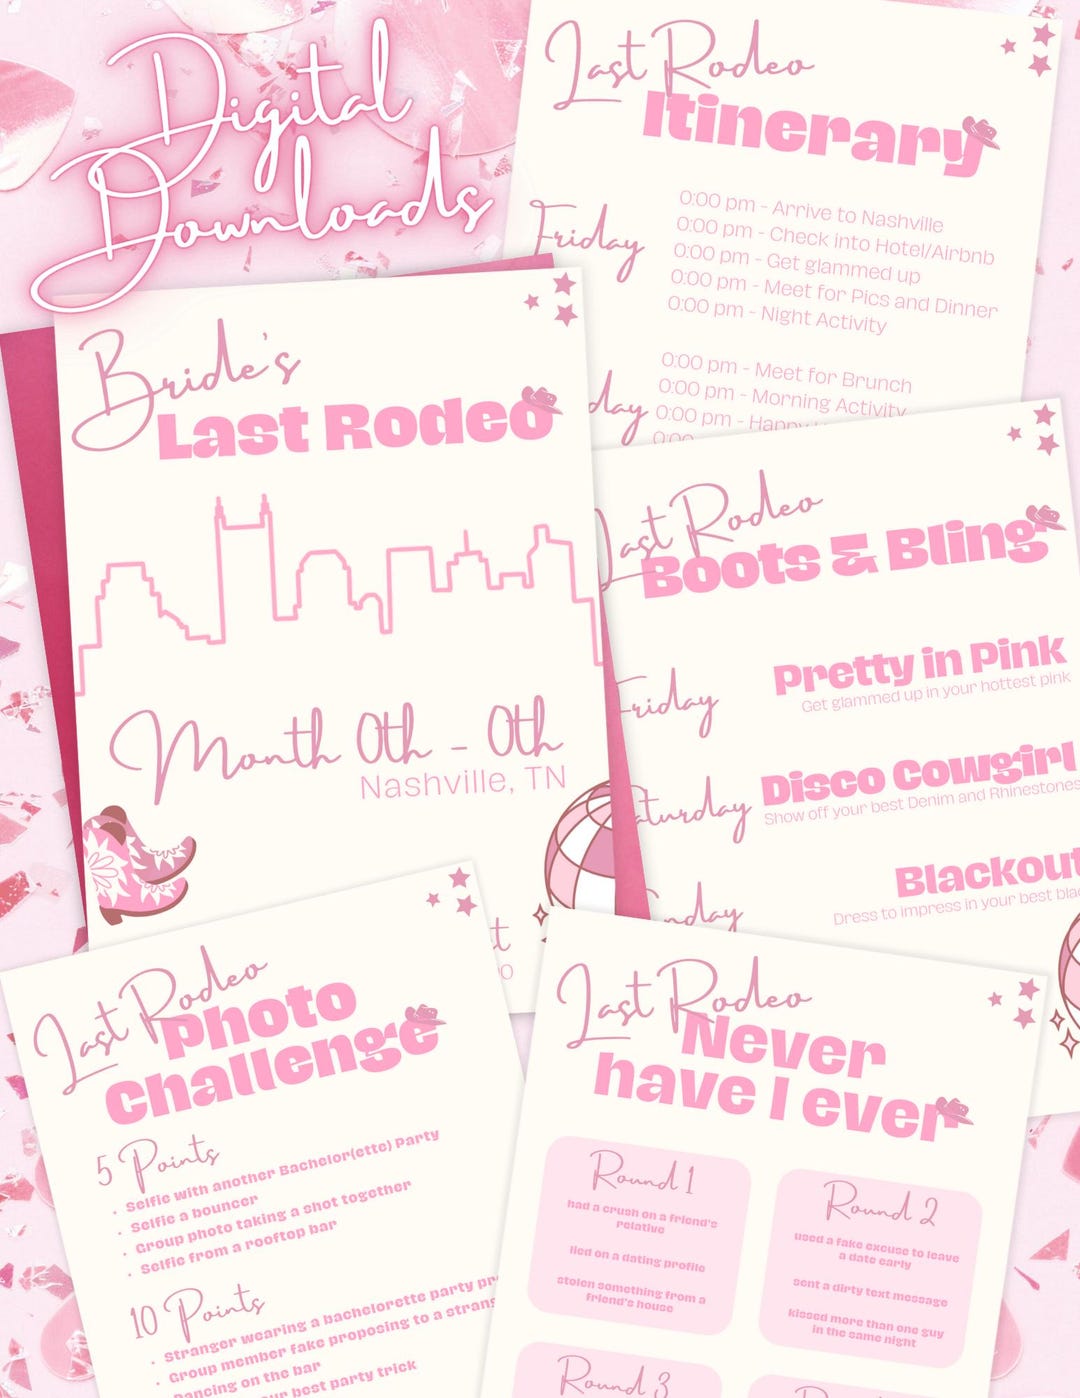 Digital
Downloads
Last Rodeo
Itinerary
Friday
0:00 pm - Arrive to Nashville
0:00 pm - Check into Hotel/Airbnb
0:00 pm - Get glammed up
0:00 pm - Meet for Pics and Dinner
0:00 pm - Night Activity
day
0:00 pm - Meet for Brunch
0:00 pm - Morning Activity
0:00 pm - Happy
0:00
Bride's
Last Rodeo
Month 0th - 0th
Nashville, TN
Last Rodeo
Boots & Bling
Friday
Pretty in Pink
Get glammed up in your hottest pink
Saturday
Disco Cowgirl
Show off your best Denim and Rhinestones
Sunday
Blackout
Dress to impress in your best
Last Rodeo
Photo
Challenge
5 Points
• Selfie with another Bachelor(ette) Party
• Selfie a bouncer
• Group photo taking a shot together
• Selfie from a rooftop bar
10 Points
• Stranger wearing a bachelorette party
• Group member fake proposing to a
Dancing on the bar
best party trick
Last Rodeo
Never
have I ever
Round 1
had a crush on a friend's
relative
lied on a dating profile
stolen something from a
friend's house
Round 2
used a fake excuse to leave
a date early
sent a dirty text message
kissed more than one guy
in the same night
Round 3